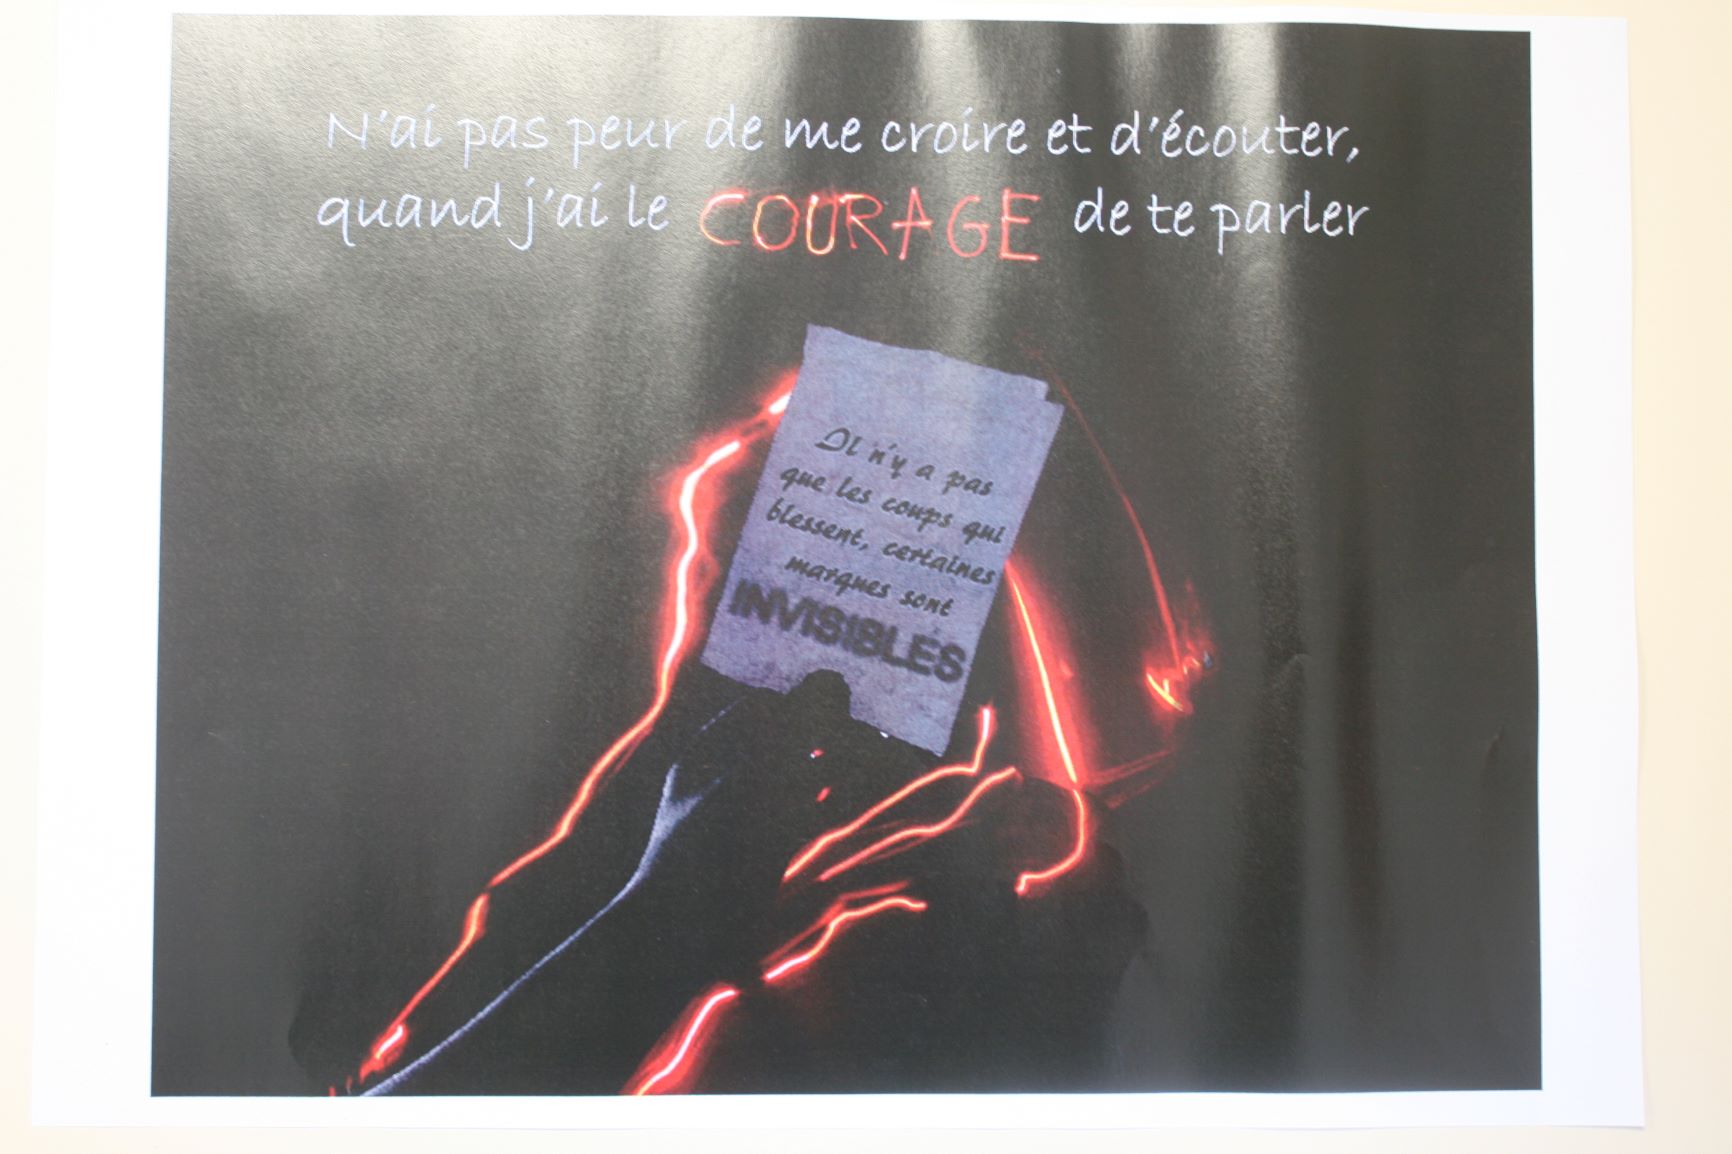 N'ai pas peur de me croire et d'écouter,
quand j'ai le COURAGE de te parler
Il n'y a pas
que les coups qui
blessent, certaines
marques sont
INVISIBLES